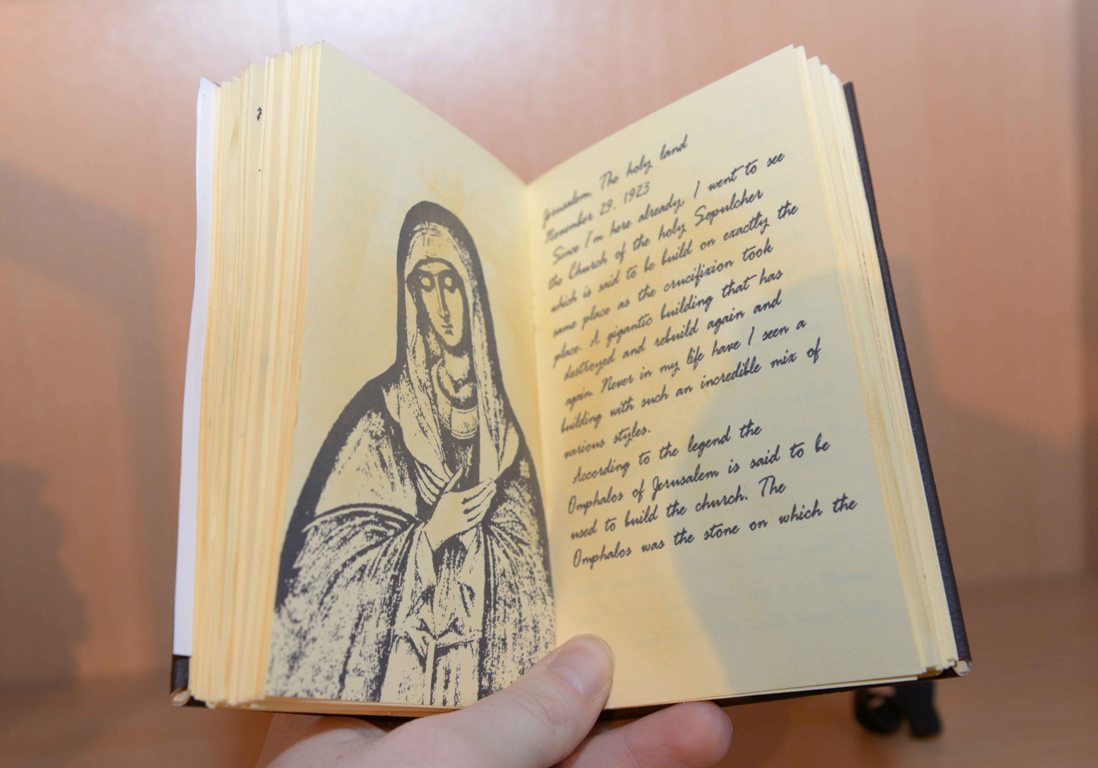 Jerusalem, The holy land
November 29, 1923
Since I'm here already, I went to see
the Church of the holy Sepulcher
which is said to be build on exactly the
same place as the crucifixion took
place. A gigantic building that has
destroyed and rebuild again and
again. Never in my life have I seen a
building with such an incredible mix of
various styles.
According to the legend the
Omphalos of Jerusalem is said to be
used to build the church. The
Omphalos was the stone on which the